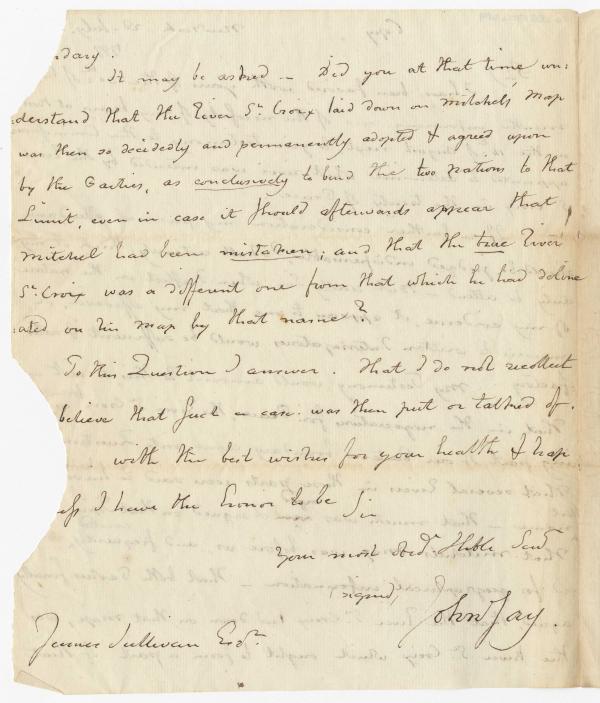 ndary.
It may be asked – Did you at that time un:
:derstand that the River St. Croix laid down on mitchel's map
was then so decidedly and permanently adopted & agreed upon
by the Parties, as conclusively to bind the two nations to that
Limit, even in case it should afterwards appear that
mitchel had been mistaken; and that the true River
St. Croix was a different one from that which he had deline
:ated on his map by that name?
To this Question I answer. That I do not recollect
believe that such a case was then put or talked of.
with the best wishes for your health & hap
ess I have the Honor to be Sir
your most obdt. Hble Servt
(signed)
John Jay.
James Sullivan Esqr.